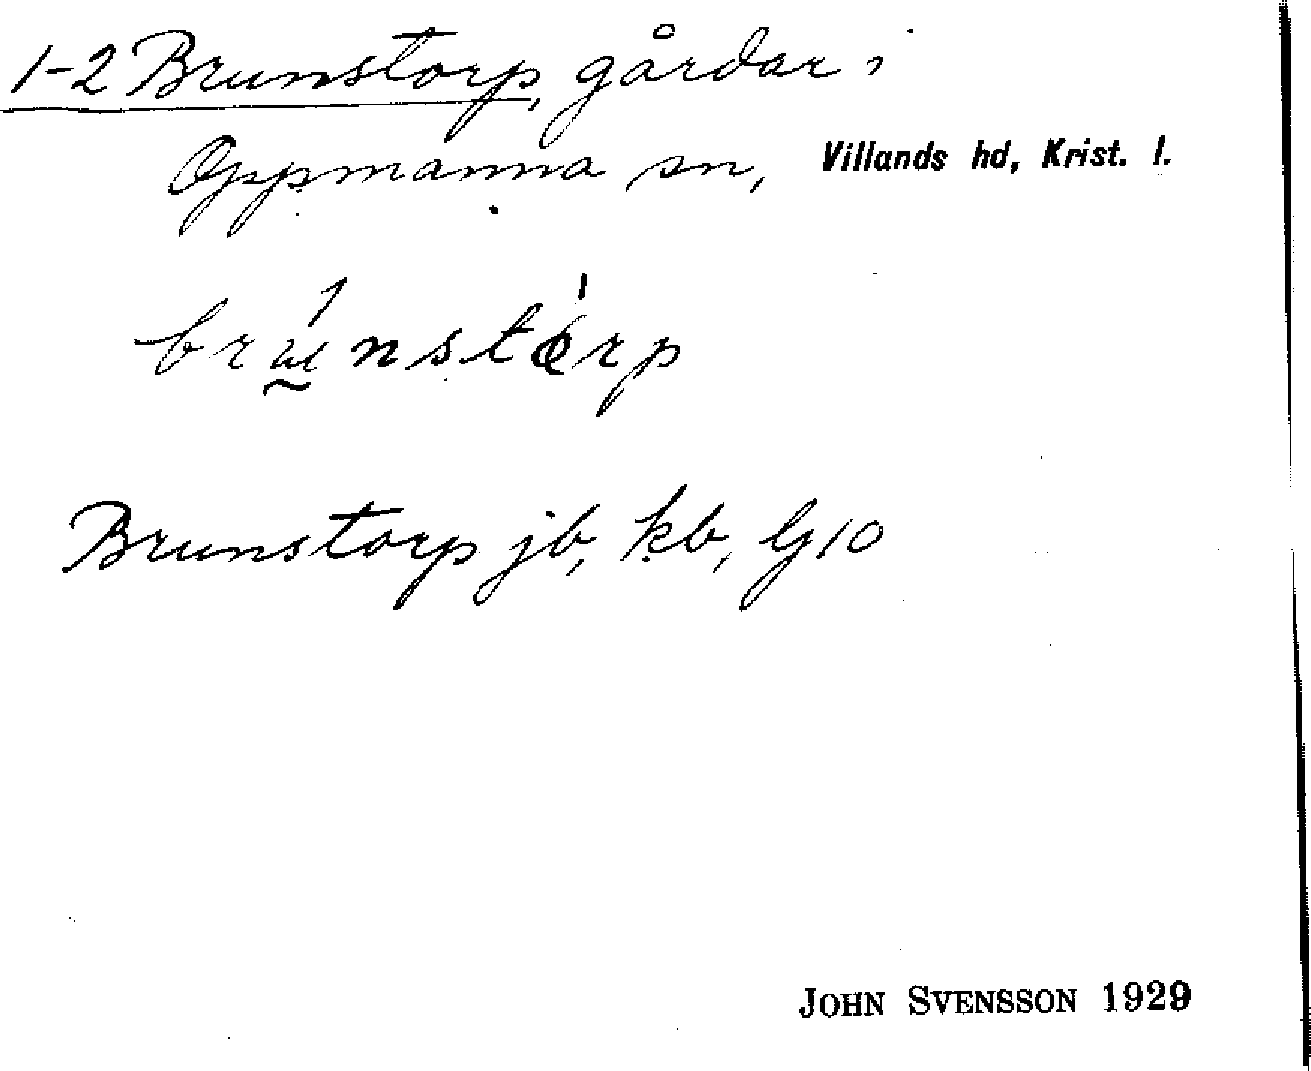 1-2 Brunstorp, gårdar i
Oppmanna sn, Villands hd, Krist. l.
Brunstorp jb, kb, G10
JOHN SVENSSON 1929